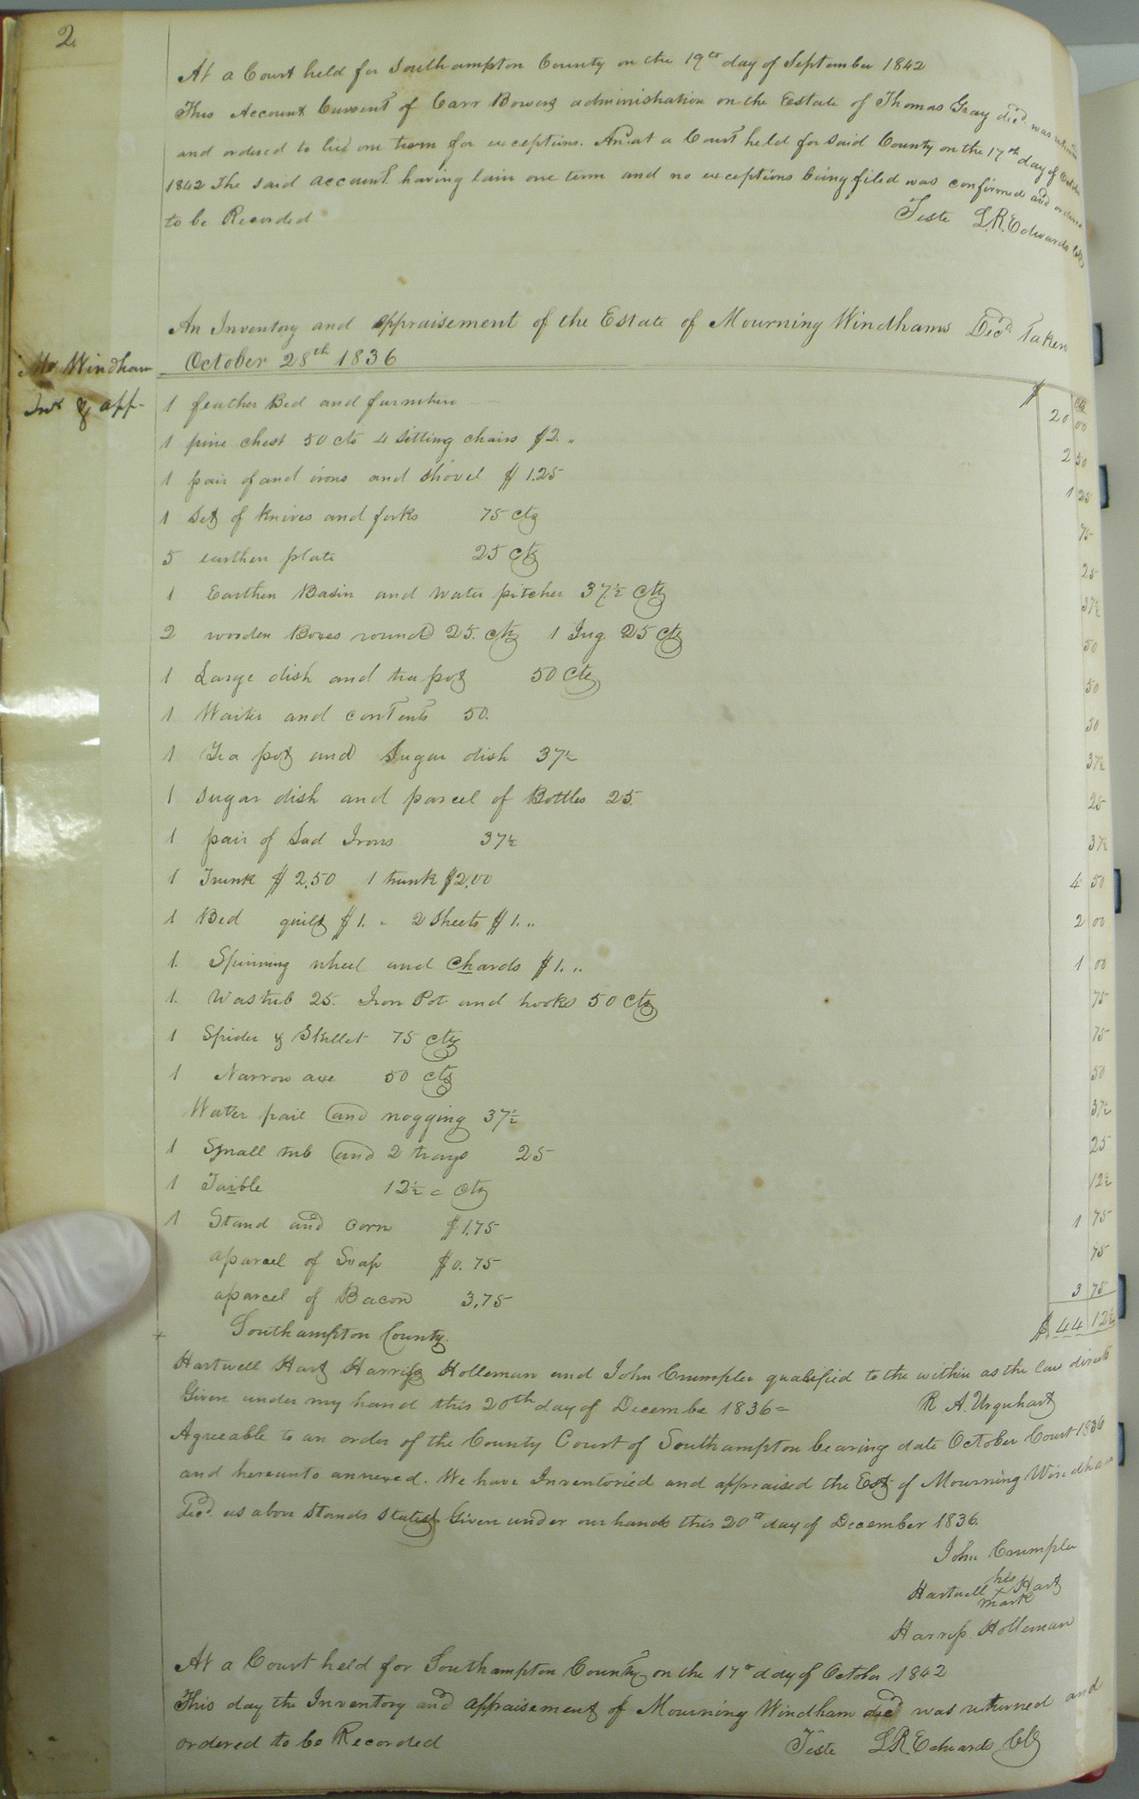 2
At a Court held for Southampton County on the 19th day of September 1842
This Account Current of Carr Bowers administration on the Estate of Thomas Gray decd. was returned
and ordered to lie one term for exceptions. And at a Court held for said County on the 17th day of October
1842 The said account having lain one term and no exceptions being filed was confirmed and ordered
to be Recorded
Teste L.R. Edwards Clk
An Inventory and appraisement of the Estate of Mourning Windhams Decd. Taken
October 28th 1836
Windham
Invt & app-
$ cts
1 feather Bed and furniture 20 00
1 pine chest 50 cts 4 sitting chairs $2. „ 2 50
1 pair of and irons and shovel $1.25 1 25
1 Set of knives and forks 75 cts 75
5 earthen plate 25 cts 25
1 Earthen Basin and water pitcher 37½ cts 37½
2 wooden Boxes round 25. cts 1 Jug 25 cts 50
1 Large dish and tea pot 50 cts 50
1 Waiter and contents 50. 50
1 Tea pot and Sugar dish 37½ 37½
1 Sugar dish and parcel of Bottles 25. 25
1 pair of Sad Irons 37½ 37½
1 Trunk $2.50 1 trunk $2.00 4 50
1 Bed quilt $1. „ 2 Sheets $1. „ 2 00
1. Spinning wheel and chards $1. „ 1 00
1. Wastub 25. Iron Pot and hooks 50 cts 75
1 Spider & Skillet 75 cts 75
1 Narrow axe 50 cts 50
Water pail and nogging 37½ 37½
1 Small tub and 2 trays 25 25
1 Taible 12½ = cts 12½
1 Stand and corn $1.75 1 75
aparcel of Soap $0.75 75
aparcel of Bacon 3.75 3 75
Southampton County. $44 12½
Hartwell Hart Harriss Holleman and John Crumpler qualified to the within as the law directs
Given under my hand this 20th day of Decembe 1836= R A. Urquhart
Agreeable to an order of the County Court of Southampton bearing date October Court 1836
and hereunto annexed. We have Inventoried and appraised the Est. of Mourning Windham
decd. as above stands stated Given under our hands this 20th day of December 1836.
John Crumpler
Hartwell his x mark Hart
Harriss Holleman
At a Court held for Southampton County on the 17th day of October 1842
This day the Inventory and appraisement of Mourning Windham decd was returned and
ordered to be Recorded
Teste L.R. Edwards Clk